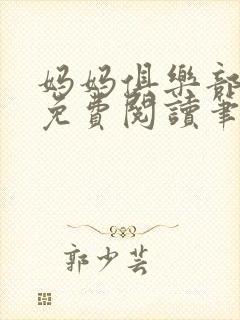 媽媽俱樂部
免費閱讀筆
郭少芸